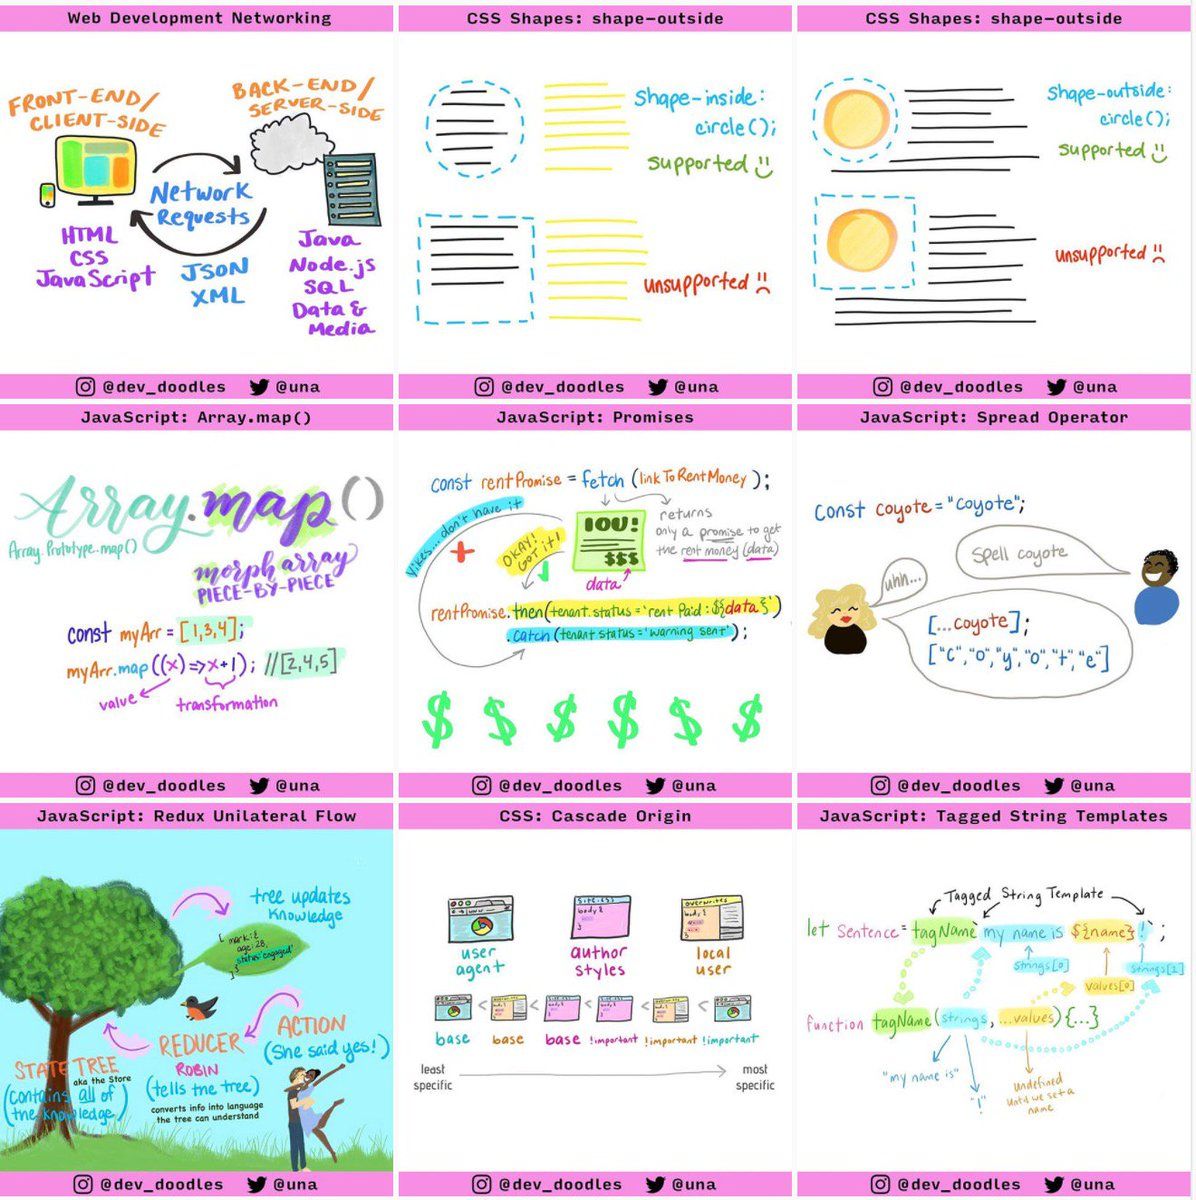 Web Development Networking
FRONT-END/
CLIENT-SIDE
BACK-END/
SERVER-SIDE
Network
Requests
HTML
CSS
JavaScript
JSON
XML
Java
Node.js
SQL
Data &
Media
@dev_doodles @una
CSS Shapes: shape-outside
shape-inside:
circle();
supported
unsupported
@dev_doodles @una
CSS Shapes: shape-outside
shape-outside:
circle();
supported
unsupported
@dev_doodles @una
JavaScript: Array.map()
Array.map()
Array.Prototype.map()
morph array
PIECE-BY-PIECE
const myArr = [1,3,4];
myArr.map((x)=>x+1); //[2,4,5]
value
transformation
@dev_doodles @una
JavaScript: Promises
const rentPromise = fetch (linkToRentMoney);
Yikes... don't have it
OKAY!
GOT it!
IOU!
$$$
returns
only a promise to get
the rent money (data)
data
rentPromise.then(tenant.status='rent Paid:${data}')
.catch(tenant.status='warning sent');
$ $ $ $ $ $
@dev_doodles @una
JavaScript: Spread Operator
const coyote="coyote";
Spell coyote
uhh...
[...coyote];
["c","o","y","o","t","e"]
@dev_doodles @una
JavaScript: Redux Unilateral Flow
tree updates
knowledge
{ mark:{
age: 28,
status:'engaged'
}
ACTION
(She said yes!)
REDUCER
ROBIN
(tells the tree)
converts info into language
the tree can understand
STATE TREE
aka the Store
(contains all of
the knowledge)
@dev_doodles @una
CSS: Cascade Origin
www
user
agent
site.css
body{
}
author
styles
overwrites
body{
}
local
user
< < < < <
base base base !important !important !important
least
specific
most
specific
@dev_doodles @una
JavaScript: Tagged String Templates
Tagged String Template
let sentence = tagName`my name is ${name}!`;
strings[0]
values[0]
strings[1]
function tagName(strings,...values){...}
"my name is"
"!"
undefined
until we set a
name
@dev_doodles @una